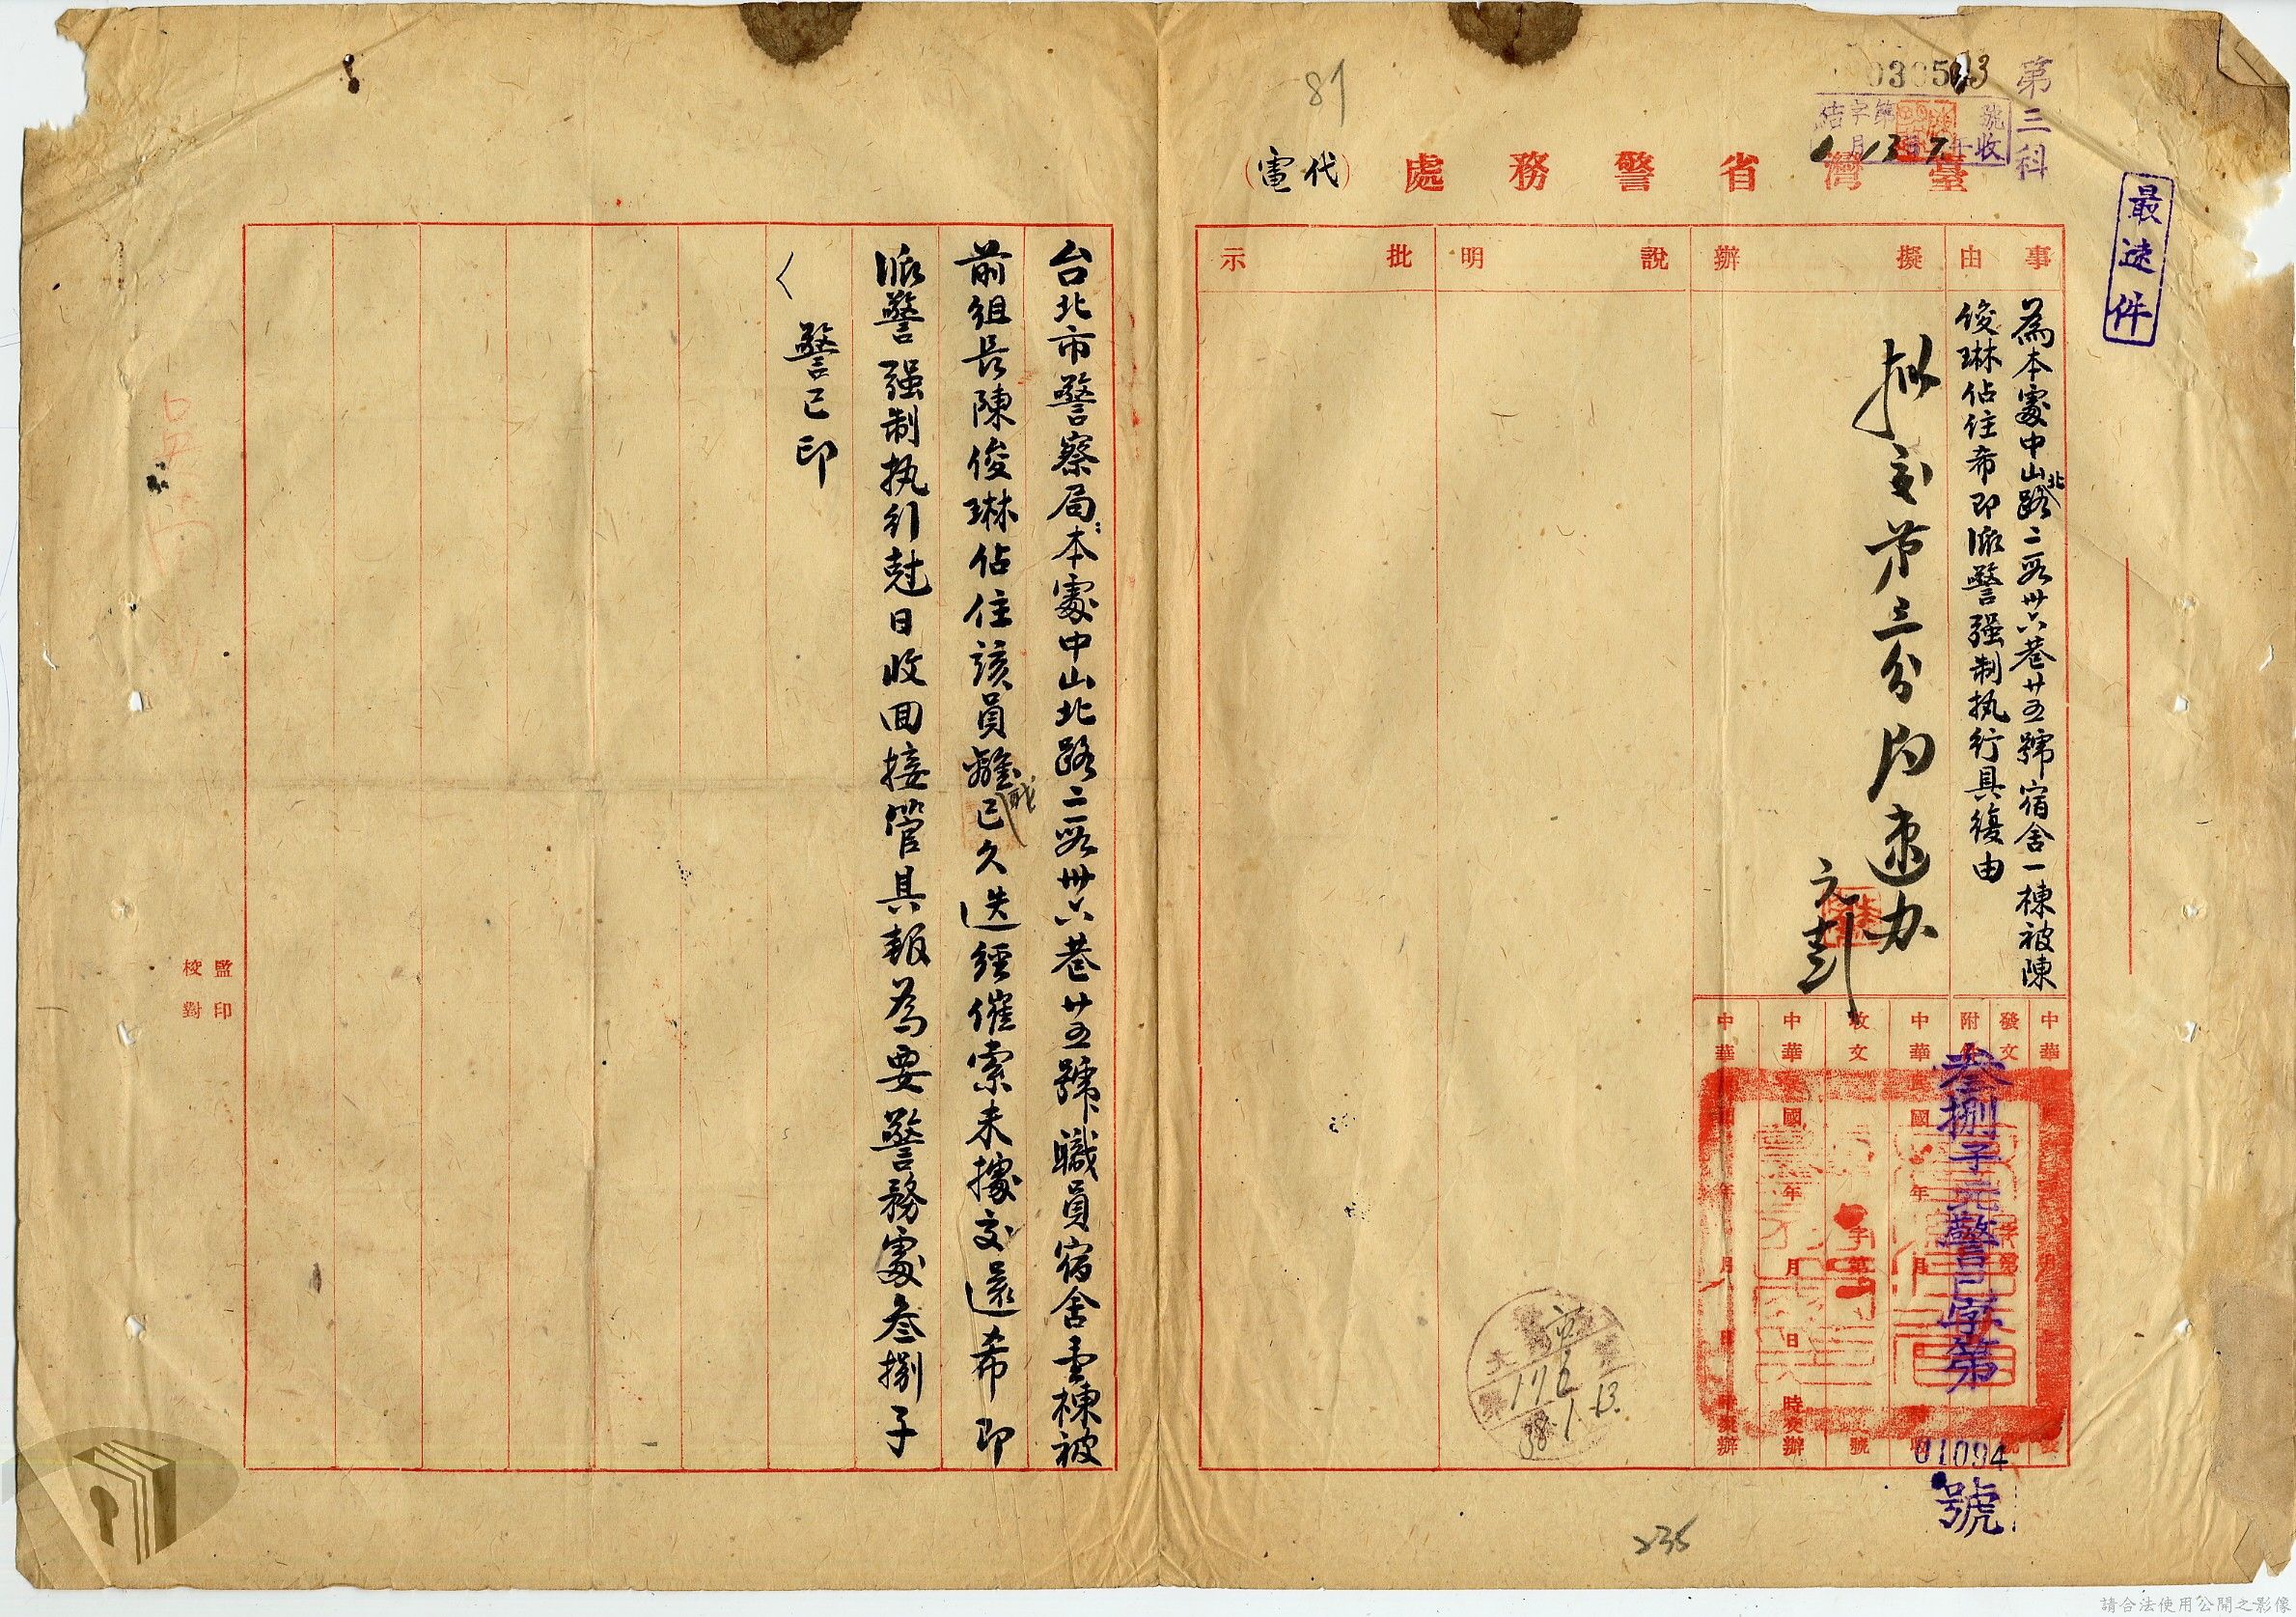 第三科
最速件
臺灣省警務處（代電）
事由
擬辦
說明
批示
為本處中山北路二段卅六巷廿五號宿舍一棟被陳
俊琳佔住希即派警强制执行具復由
拟交第三分局速办
中華
發文
附件
中華國年月日
收文字第號
中華國年月日時交辦
中華
叁捌子元警已字第
01094
號
38.1.13.
236
81
台北市警察局：本處中山北路二段卅六巷廿五號職員宿舍壹棟被
前組長陳俊琳佔住該員離職已久迭經催索未據交還希即
派警强制执行尅日收回接管具報為要警務處叁捌子
警已印
監印
校對
請合法使用公開之影像